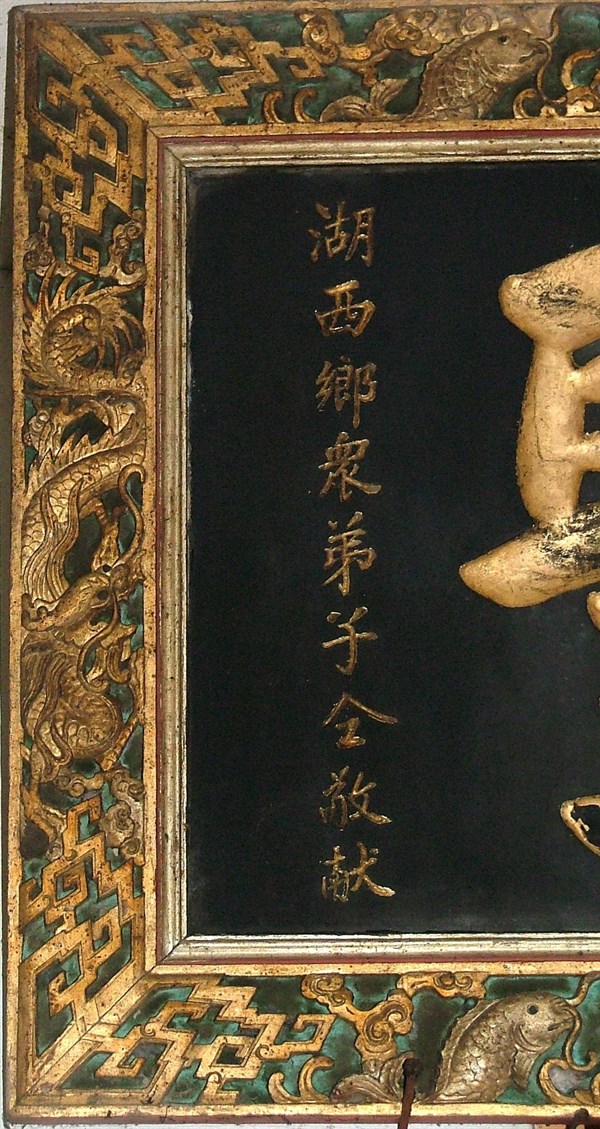 湖西鄉眾弟子仝敬献